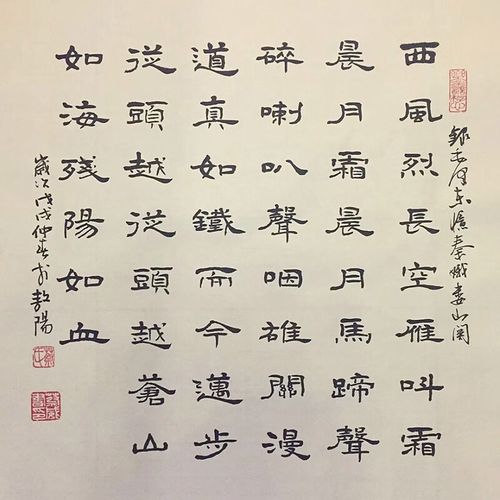 録毛澤东憶秦娥娄山関
西風烈長空雁叫霜
晨月霜晨月馬蹄聲
碎喇叭聲咽雄關漫
道真如鐵而今邁步
從頭越從頭越蒼山
如海殘陽如血
歲次戊戌仲春於敖陽